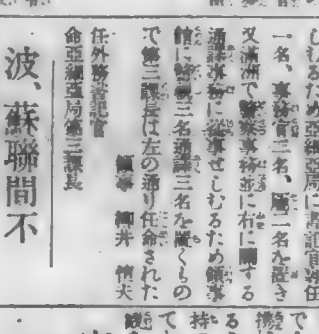 しむるため亞細亞局に書記官專任
一名、事務官三名、屬二名を置き
又滿洲で警察事務並に右に關する
通譯事務に從事せしむるため領事
館に警視三名通譯三名を置くもの
で第三課長は左の通り任命された
任外務書記官
命亞細亞局第三課長
領事
波、蘇聯間不